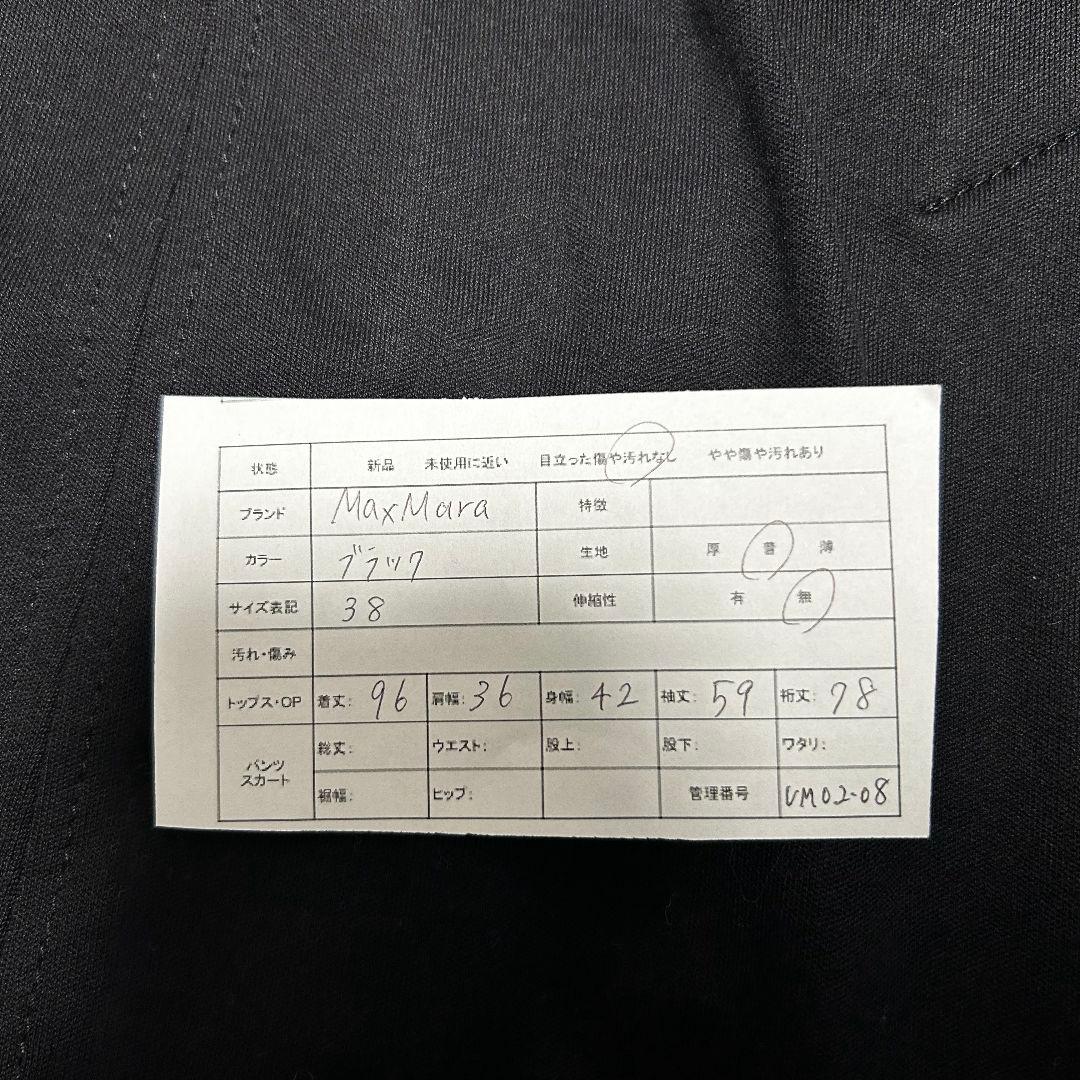 状態 新品 未使用に近い 目立った傷や汚れなし やや傷や汚れあり
ブランド MaxMara 特徴
カラー ブラック 生地 厚 普 薄
サイズ表記 38 伸縮性 有 無
汚れ・傷み
トップス・OP 着丈: 96 肩幅: 36 身幅: 42 袖丈: 59 裄丈: 78
パンツ スカート 総丈: ウエスト: 股上: 股下: ワタリ:
裾幅: ヒップ: 管理番号 VM02-08